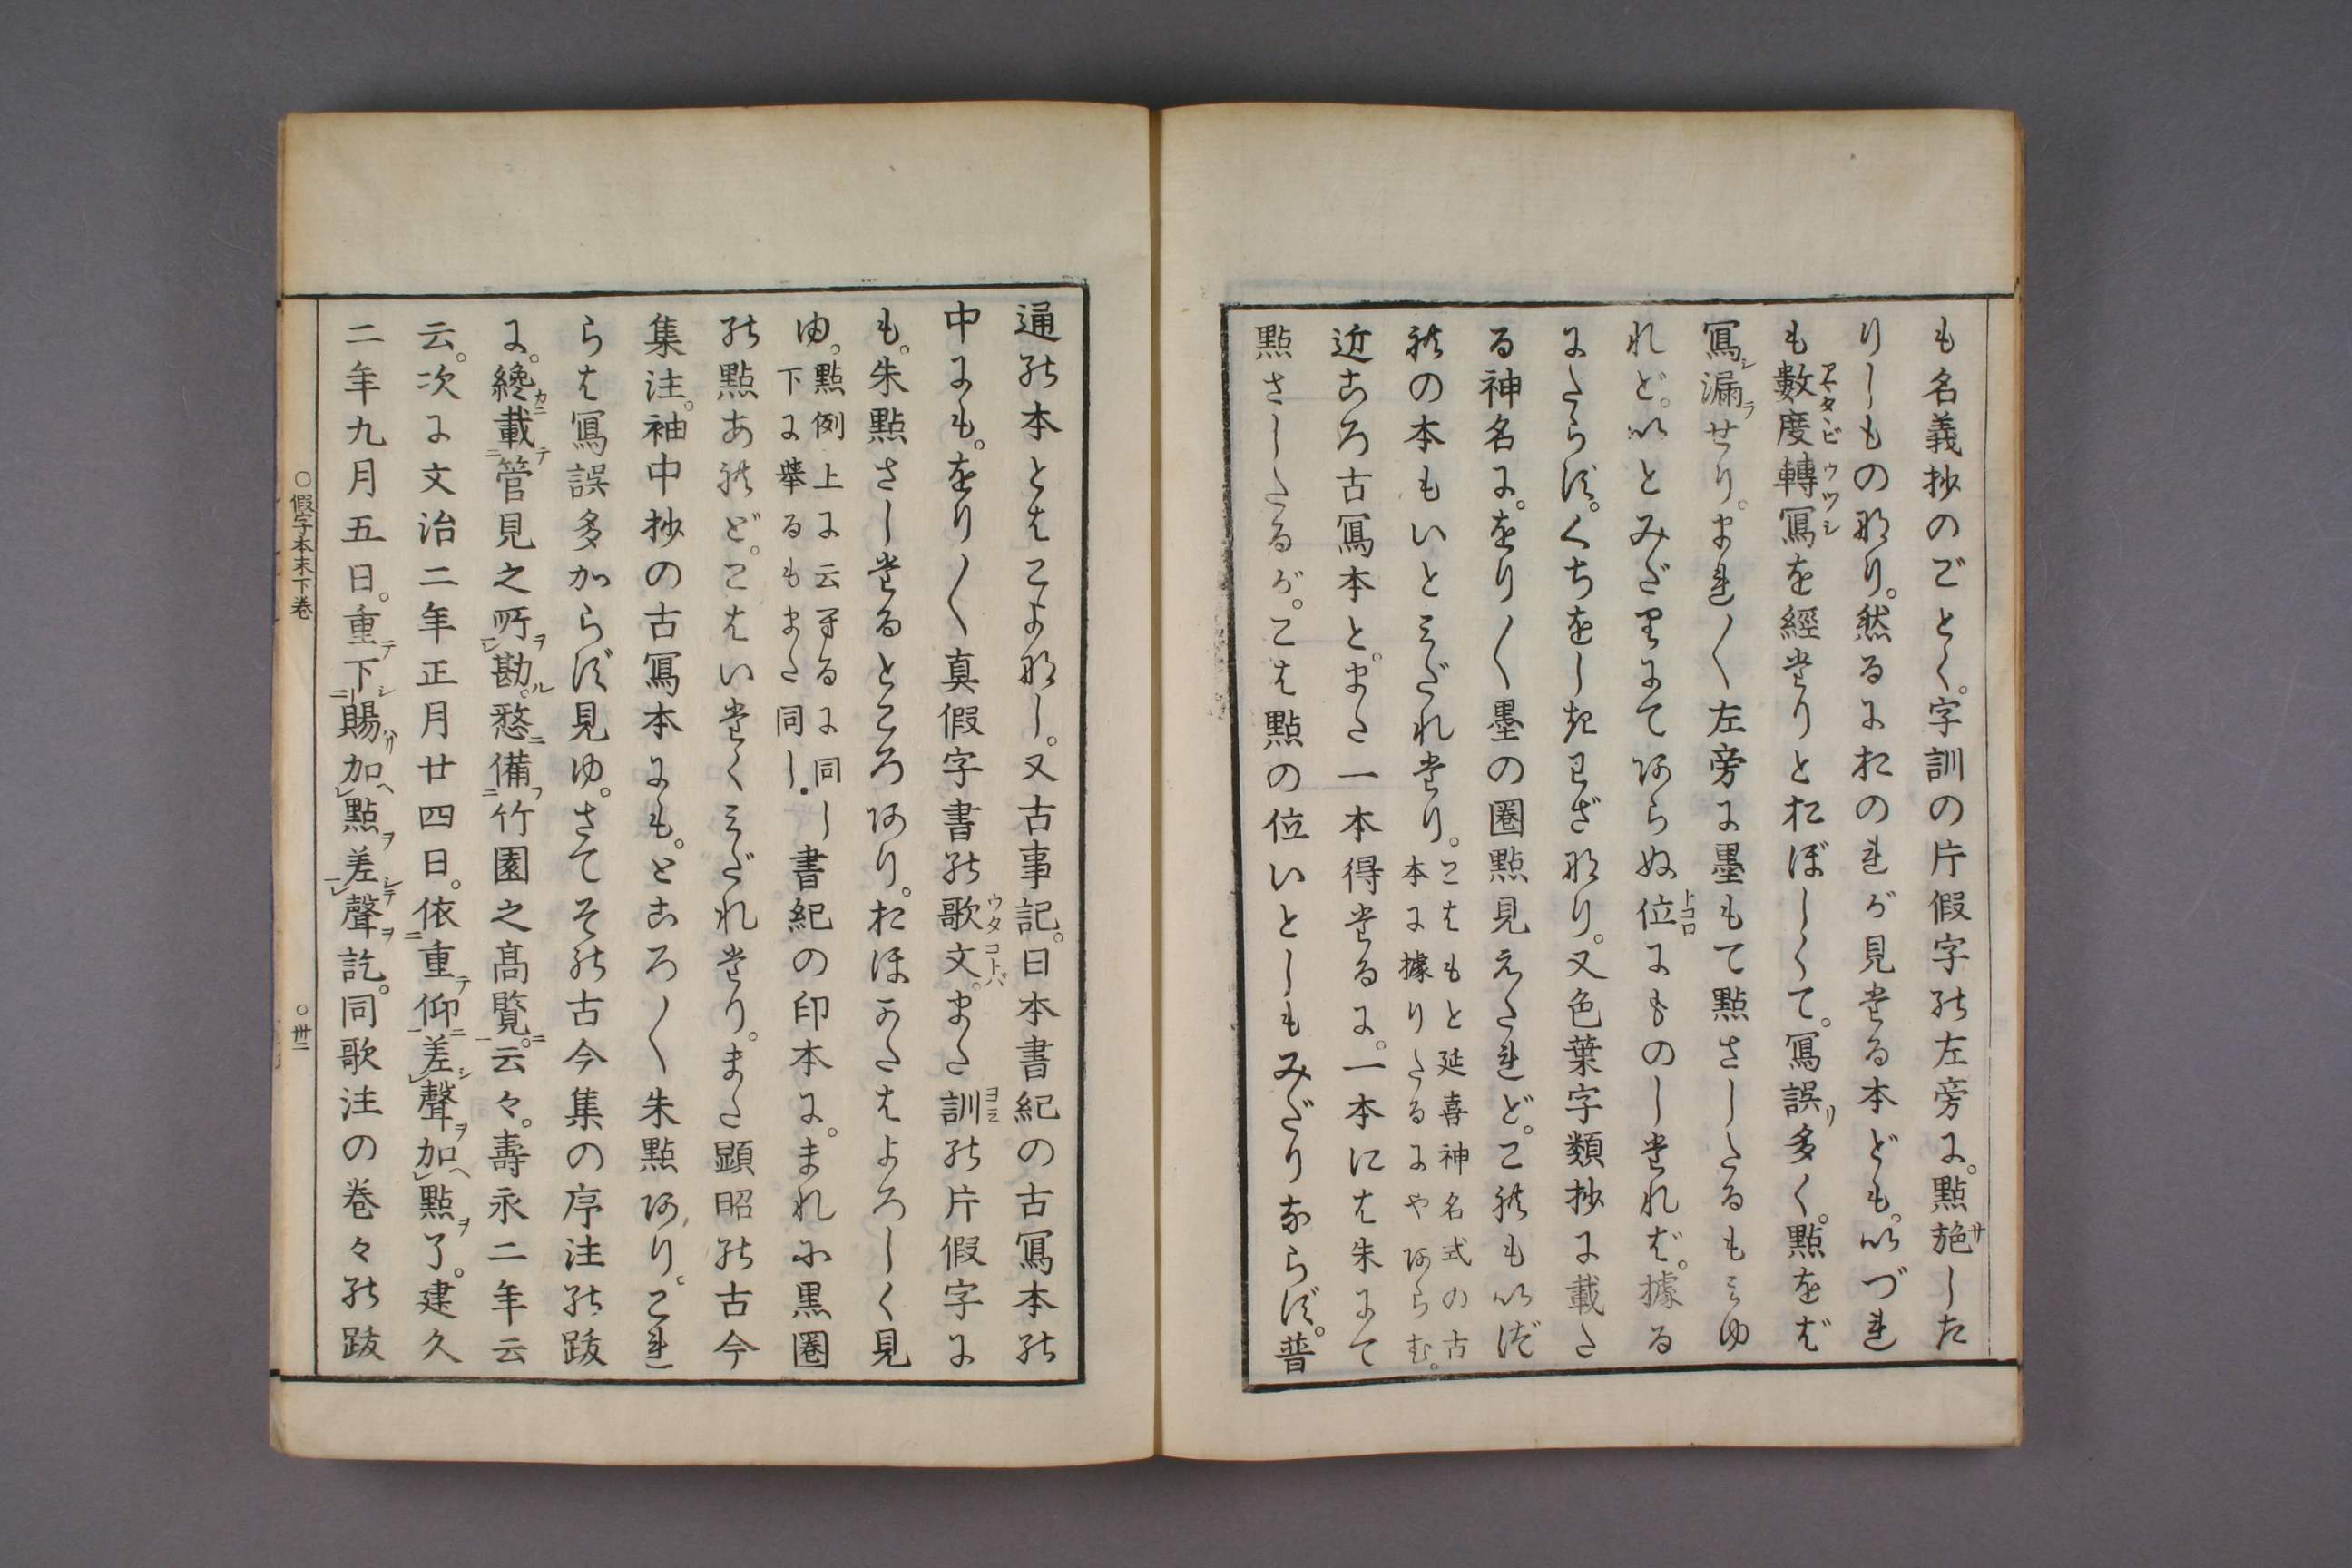 も名義抄のごとく。字訓の片假字の左旁に。點施した
りしもの也なり。然るにおのれが見たる本ども。いづれ
も數度轉寫を經たりとおぼしくて。寫誤多く。點をば
寫漏せり。まれ〱左旁に墨もて點さしたるもみゆ
れど。いとみだりにてあらぬ位にものしたれば。據る
にたらず。くちをしきわざなり。又色葉字類抄に載た
る神名に。をり〱墨の圏點見えたれど。これもいづ
れの本もいとみだれたり。
こはもと延喜神名式の古
本に據りたるにやあらむ。
近ころ古寫本と。また一本得たるに。一本には朱にて
點さしたるが。こは點の位いとしもみだりならず。普
通の本とはこよなし。又古事記。日本書紀の古寫本の
中にも。をり〱真假字書の歌文。また訓の片假字に
も。朱點さしたるところあり。おほかたはよろしく見
ゆ。
點例上に云するに同し
下に舉るもまた同し.
書紀の印本に。まれに黒圏
の點あれど。こはいたくみだれたり。また顕昭の古今
集注。袖中抄の古寫本にも。ところ〱朱點あり。これ
らは寫誤多からず見ゆ。さてその古今集の序注の跋
に。纔載管見之所勘。愁備竹園之髙覧。云々。壽永二年云
云。次に文治二年正月廿四日。依重仰差聲加點了。建久
二年九月五日。重下賜加點差聲訖。同歌注の巻々の跋
○假字本末下巻
○卅二